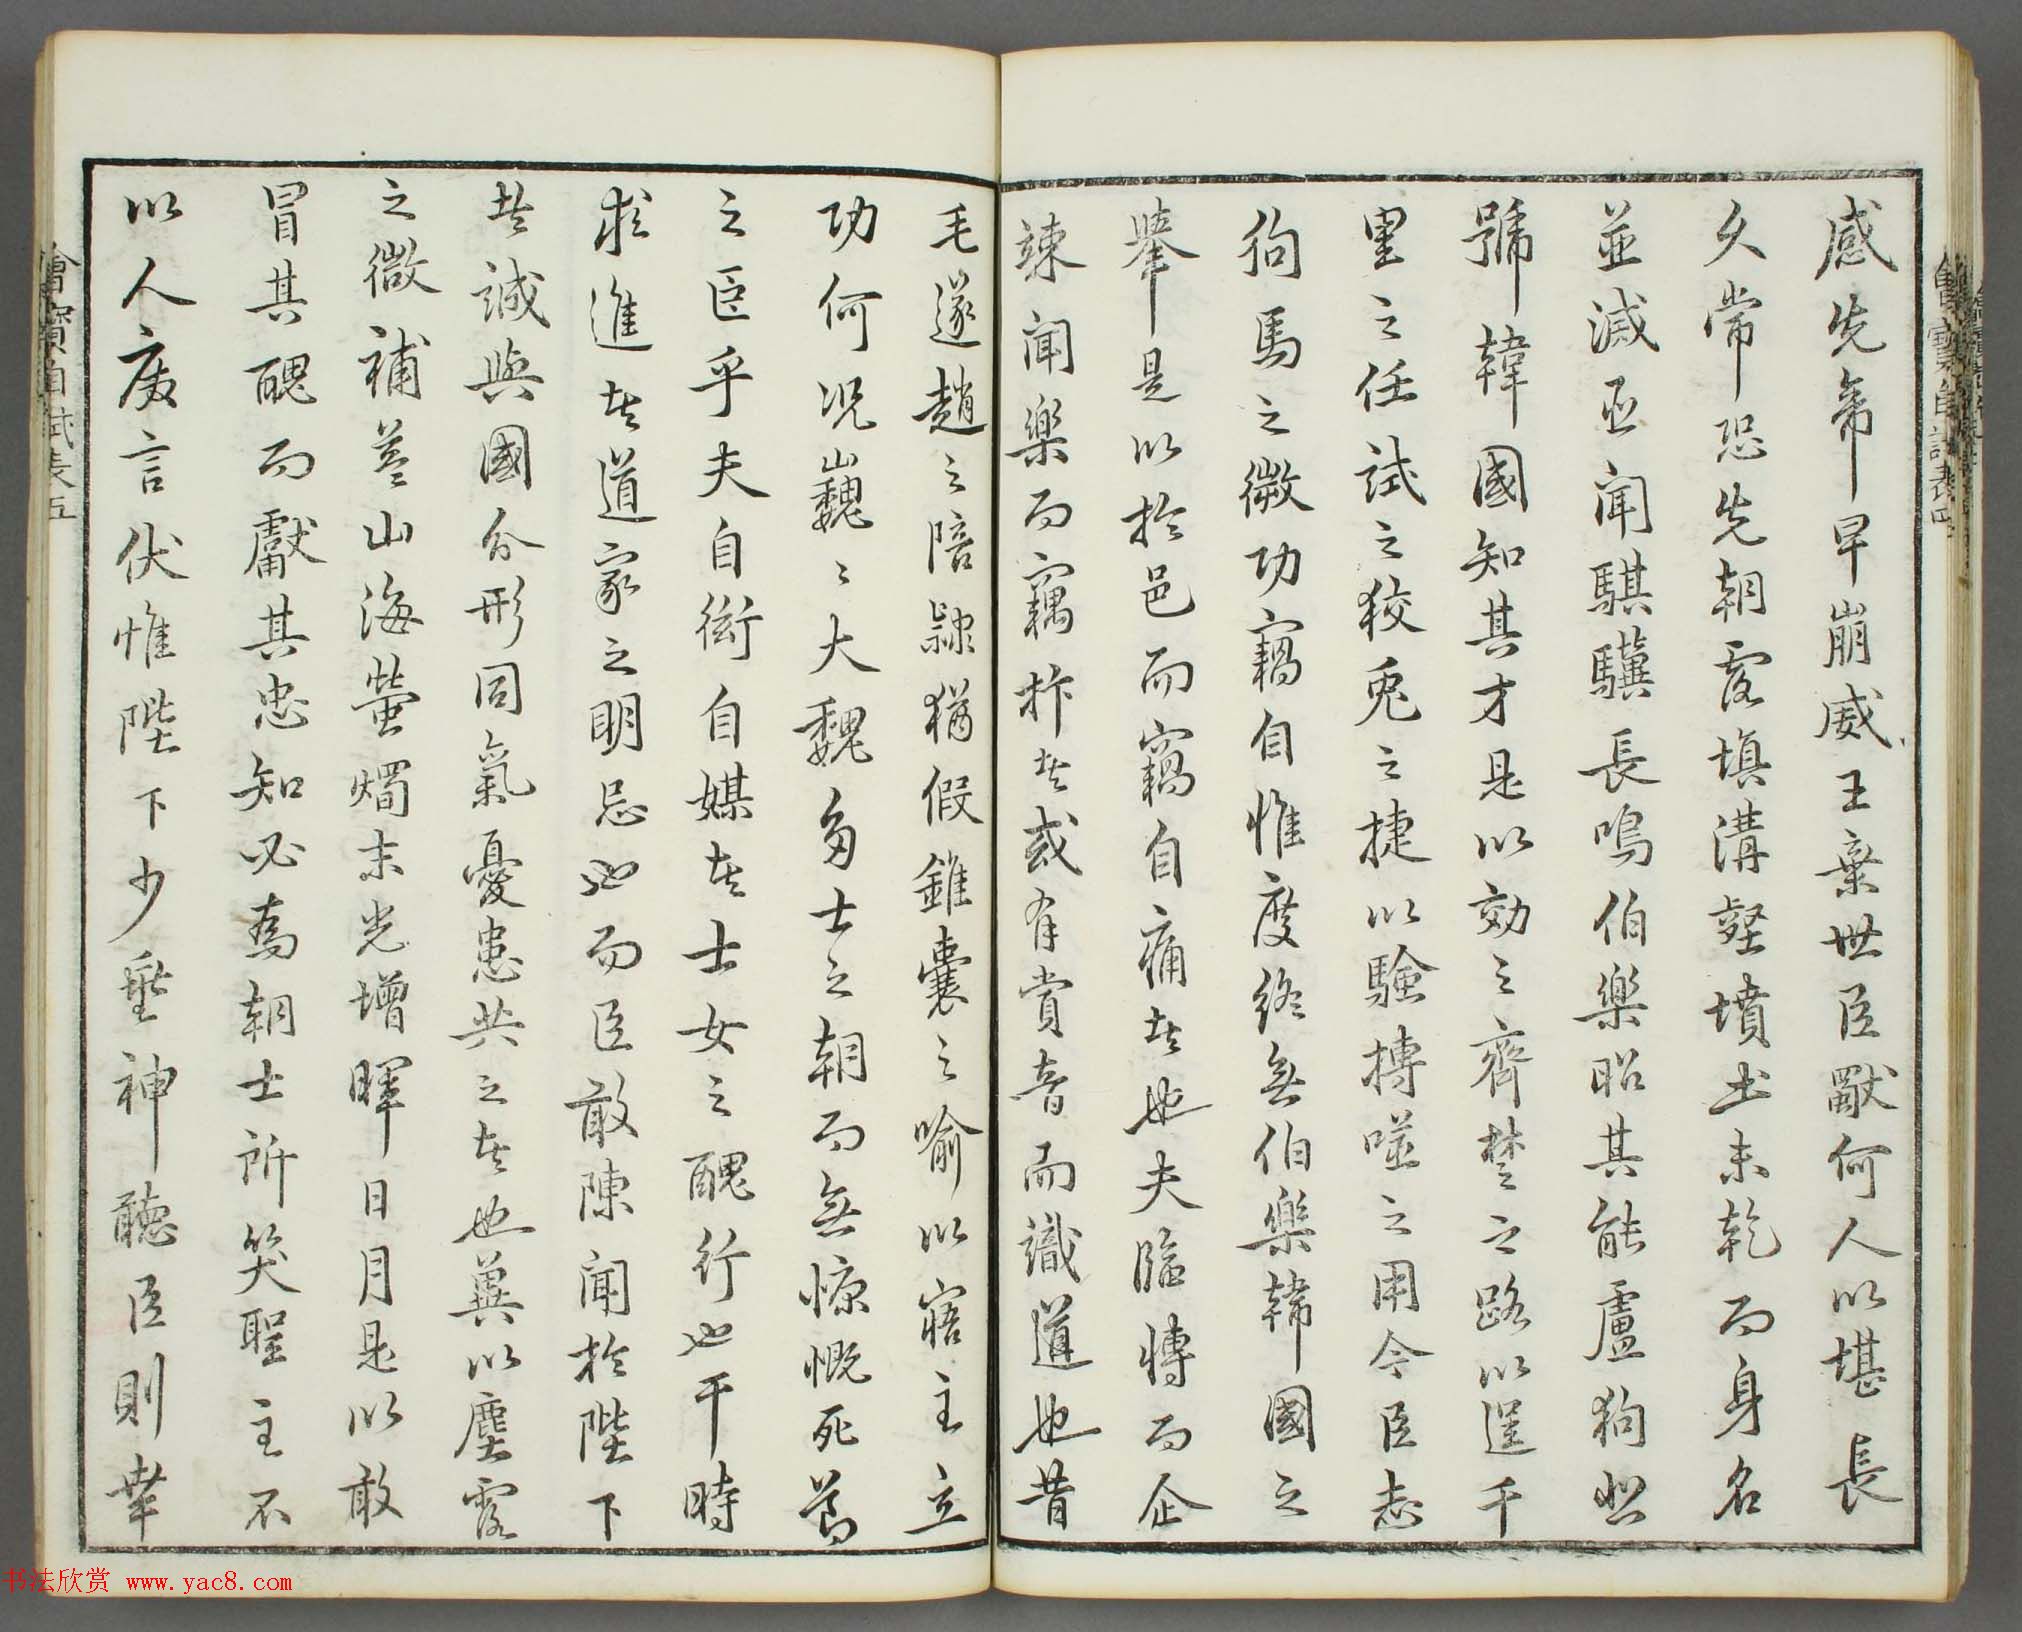 感先帝早崩威王棄世臣獨何人以堪長
久常恐先朝露填溝壑墳土未乾而身名
並滅臣聞騏驥長鳴伯樂昭其能盧狗悲
號韓國知其才是以効之齊楚之路以逞千
里之任試之狡兔之捷以驗搏噬之用今臣志
狗馬之微功竊自惟度終無伯樂韓國之
舉是以於邑而竊自痛者也夫臨博而企
竦聞樂而竊抃者或有賞音而識道也昔
毛遂趙之陪隸猶假錐囊之喻以寤主立
功何況巍〻大魏多士之朝而無慷慨死難
之臣乎夫自衒自媒者士女之醜行也干時
求進者道家之明忌也而臣敢陳聞於陛下
者誠與國分形同氣憂患共之者也冀以塵露
之微補益山海螢燭末光增暉日月是以敢
冒其醜而獻其忠知必為朝士所笑聖主不
以人廢言伏惟陛下少垂神聽臣則幸
自試表五
书法欣赏 www.yac8.com